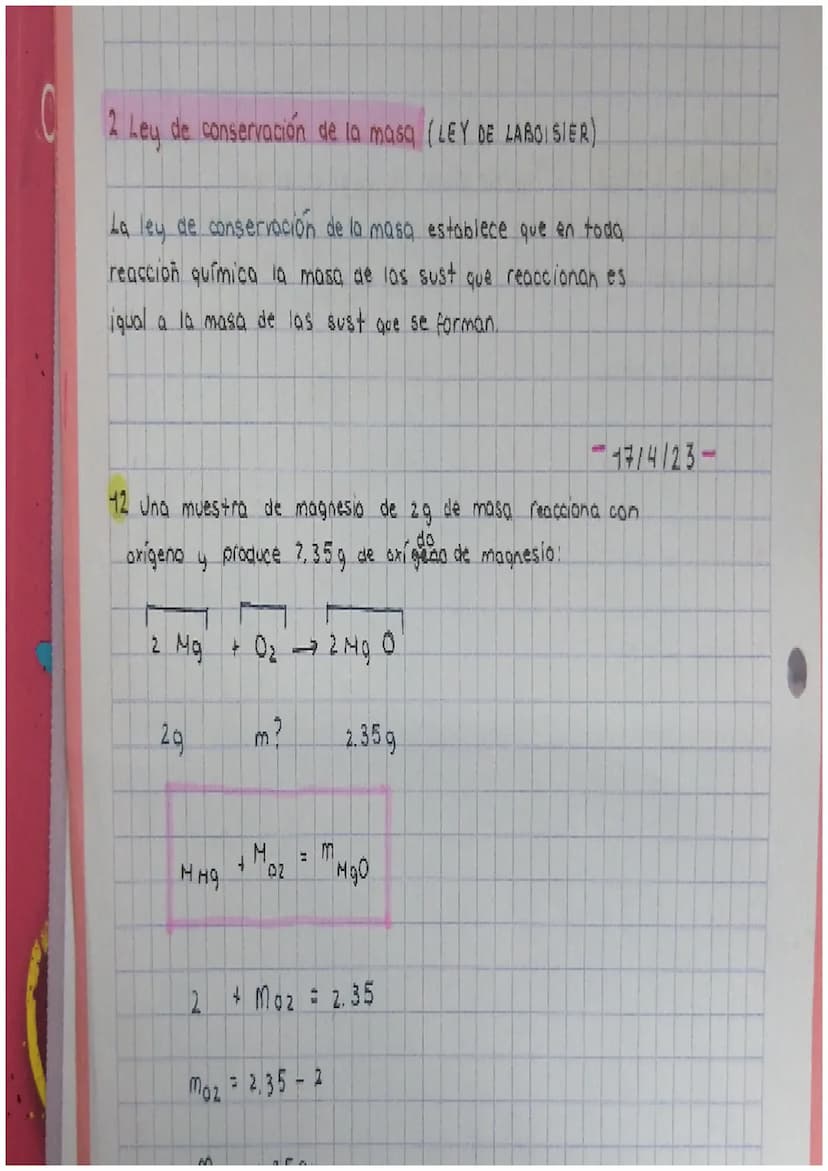 2 Ley de conservación de la masa (LEY DE LABOISIER)
La ley de conservación de la masa establece que en toda
reacción química la masa de las sust que reaccionan es
igual a la masa de las sust que se forman.
- 17/4/23 -
12 Una muestra de magnesio de 2g de masa reacciona con
oxígeno y produce 2,35g de oxído de magnesio:
2 Mg + O2 → 2 Mg O
2g m? 2.35g
M Mg + M O2 = m MgO
2 + m O2 = 2.35
m O2 = 2,35 - 2